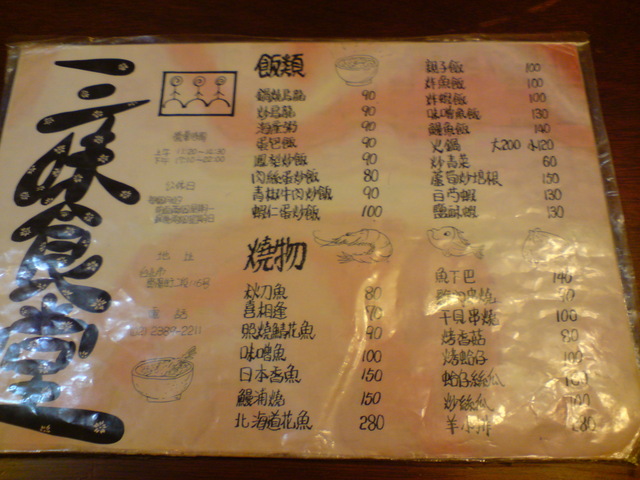 三味食堂
營業時間
公休日
地址
台北市
電話
(02)2389-2211
飯類
鍋燒烏龍 90
炒烏龍 90
海產粥 90
蛋包飯 90
鳳梨炒飯 90
肉絲蛋炒飯 80
青椒牛肉炒飯 90
蝦仁蛋炒飯 100
親子飯 100
炸魚飯 100
炸蝦飯 100
味噌魚飯 130
鰻魚飯 140
火鍋 大200 小120
炒青菜 60
蘆筍炒培根 150
白芍蝦 130
鹽酥蝦 130
燒物
秋刀魚 80
喜相逢 70
照燒鯖花魚 90
味噌魚 100
日本香魚 150
鰻浦燒 150
北海道花魚 280
魚下巴 140
干貝串燒 100
烤香菇 80
烤蛤仔 100
蛤仔絲瓜
炒絲瓜
羊小排 280